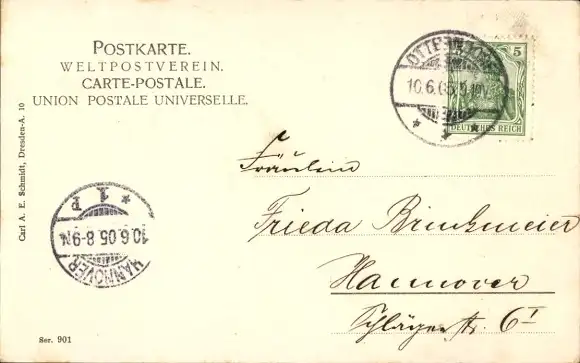 POSTKARTE.
WELTPOSTVEREIN.
CARTE-POSTALE.
UNION POSTALE UNIVERSELLE.
5
DEUTSCHES REICH
10.6.05
Fräulein
Frieda Brinkmeier
Hannover
Schlägerstr. 6 I
HANNOVER
10.6.05.8-9N
1 P
Carl A. E. Schmidt, Dresden-A. 10
Ser. 901